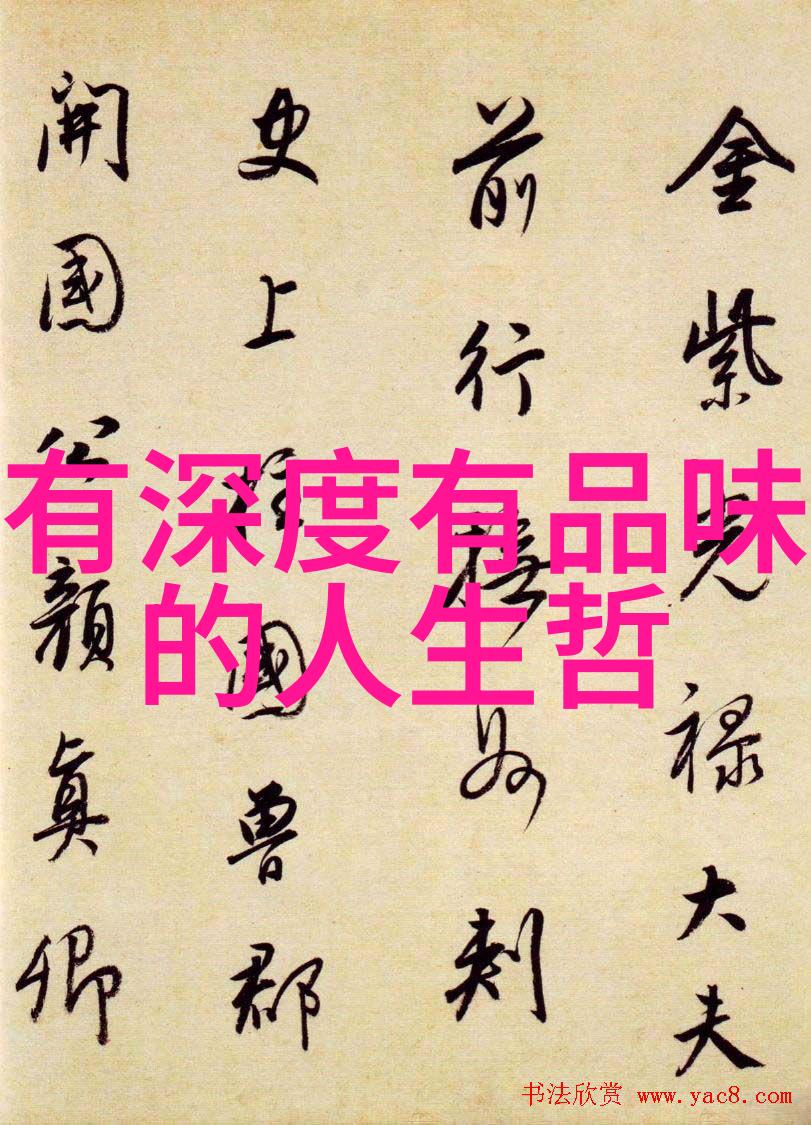 金紫光禄大夫
前行撫州刺
史上柱國魯郡
開國公顔真卿
有深度有品味
的人生哲
书法欣赏 www.yac8.com